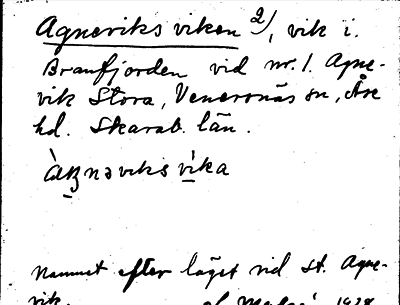 Agneviksviken 2), vik i.
Branfjorden vid nr. 1. Agne-
vik Stora, Venersnäs sn, Åse
hd. Skarab. län.
viksvika
Namnet efter läget vid St. Agne-
vik.